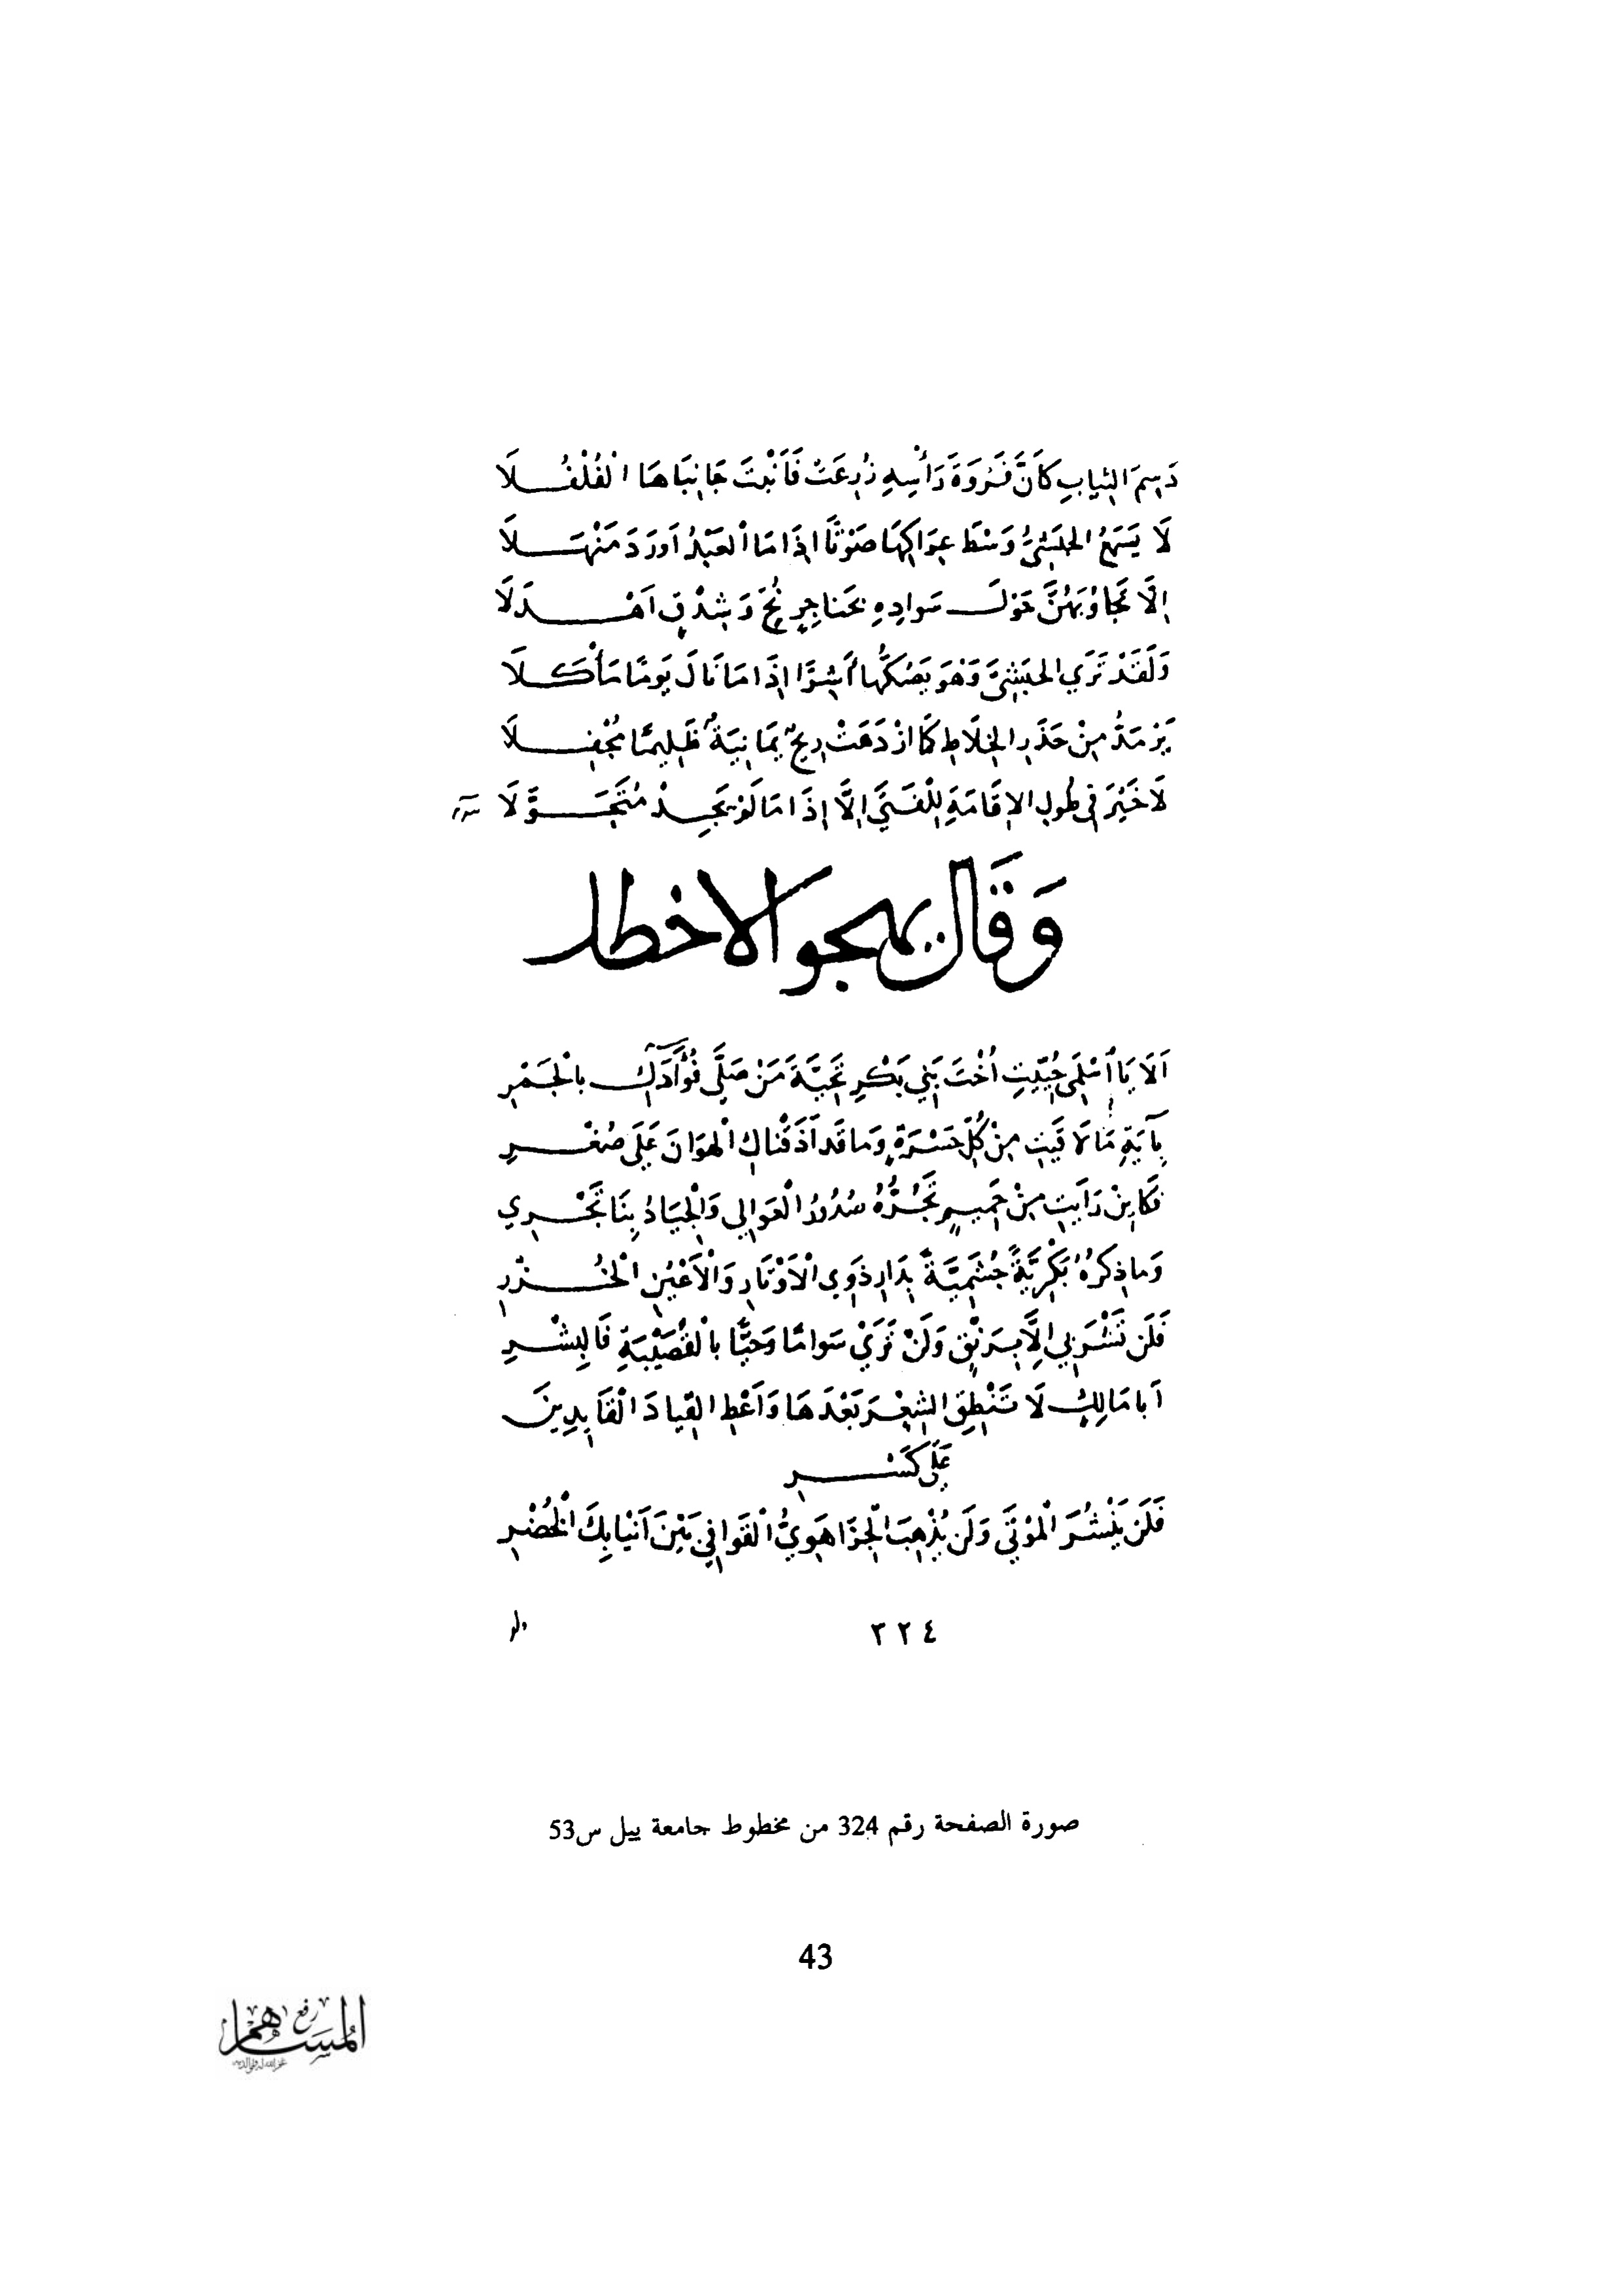 دَسِمَ الثِيابِ كَأَنَّ فَرْوَةَ رَأْسِهِ زُرِعَتْ فَأَنْبَتَ جَانِبَاهَا الْفُلْفُلَا
لَا يَسْمَعُ الحَبَشِيُّ وَسْطَ عِرَاكِهَا صَوْتًا اِذَا مَا الْعَبْدُ اَوْرَدَ مَنْهَلَا
اِلَّا تَجَاوُبَهُنَّ حَوْلَ سَوادِهِ بحَناجِرٍ بُحٍّ وَشِدْقٍ اَهْدَلَا
وَلَقَدْ تَرَي الحَبَشِيَّ وَهْوَ يَصُكُّهَا أَشِرًا اِذَا مَا نَالَ يَومًا مَأْكَلَا
مِنْ حَذَرِ الخِلَاطِ كَمَا ازْدَهَتْ رِيحٌ يَمَانِيَةٌ ظَلِيمًا مُجْفِلَا
لَا خَيْرَ فِي طُولِ الاِقَامَةِ لِلْفَتَي اِلَّا اِذَا مَا لَمْ يَجِدْ مُتَحَوَّلَا
وَقَالَ يهجو الاخطل
اَلَا يَا اسْلَمِي حُيِّيتِ اُخْتَ بَنِي بَكْرٍ تَحِيَّةَ مَنْ صَلَّي فُوَّادَكِ بالْجَمْرِ
بِآيَةِ مَا لَاقَيتِ مِنْ كُلِّ حَسْرَةٍ وَما قَد اَذَقْناكِ الْهَوَانَ عَلَي صُغْرِ
فَكَاىِنْ رَاَيتِ مِنْ حَمِيمٍ تَجُرُّهُ صُدُورُ الْعَوَالِي وَالْجِيَادُ بِنَا تَجْرِي
وَما ذِكرُهُ بَكْرِيَّةً جُشَمِيَّةً بِدَارِ ذَوِي الْاَوْتَارِ وَالْاَعْيُنِ الْخُزْرِ
فَلَن تَشْرَبي اِلَّا بِرَنْقٍ وَلَنْ تَرَيْ سَوامًا وَحَيًّا بالْقُصَيْبَةِ فَالبِشْرِ
اَبا مَالِكٍ لَا تَنْطِقِ الشِعْرَ بَعْدَهَا وَاَعْطِ القِيادَ الْقَايِدِينَ
عَلَي كَسْرِ
فَلَن يَنْشُرَ الْمَوْتَي وَلَن يُذْهِبَ الْجِزَا هَوِيُّ الْقَوافِي بَيْنَ اَنْيَابِكَ الْخُضْرِ
٣٢٤
صورة الصفحة رقم 324 من مخطوط جامعة ييل س53
43